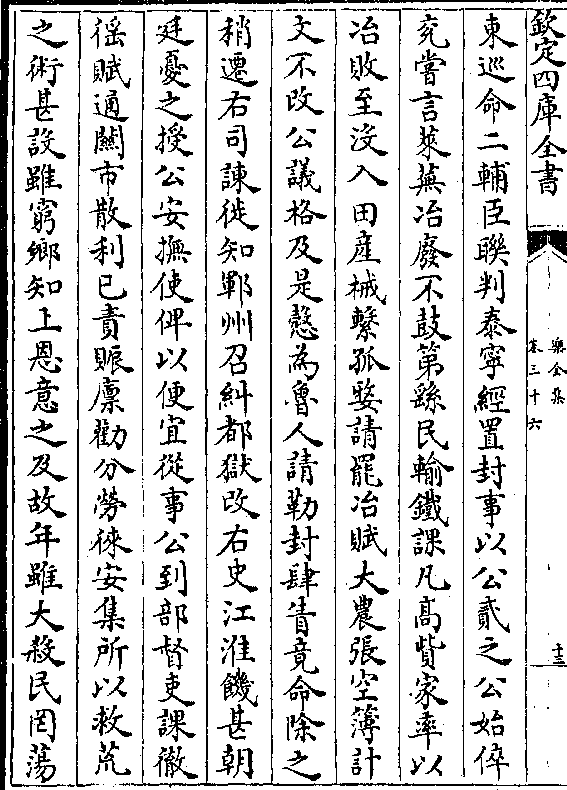 欽定四庫全書
樂全集
卷三十六
十三
東巡命二輔臣聯判泰寧經置封事以公貳之公始倅
兖嘗言萊蕪冶廢不鼓第繇民輸鐵課凡高貲家率以
冶敗至沒入田産械繫孤嫠請罷冶賦大農張空簿計
文不改公議格及是懸為魯人請勒封肆眚竟命除之
稍遷右司諫徙知鄆州召糾都獄改右史江淮饑甚朝
廷憂之授公安撫使俾以便宜從事公到部督吏課徹
徭賦通關市散利已責賑廩勸分勞徠安集所以救荒
之術甚設雖窮鄉知上恩意之及故年雖大殺民罔蕩